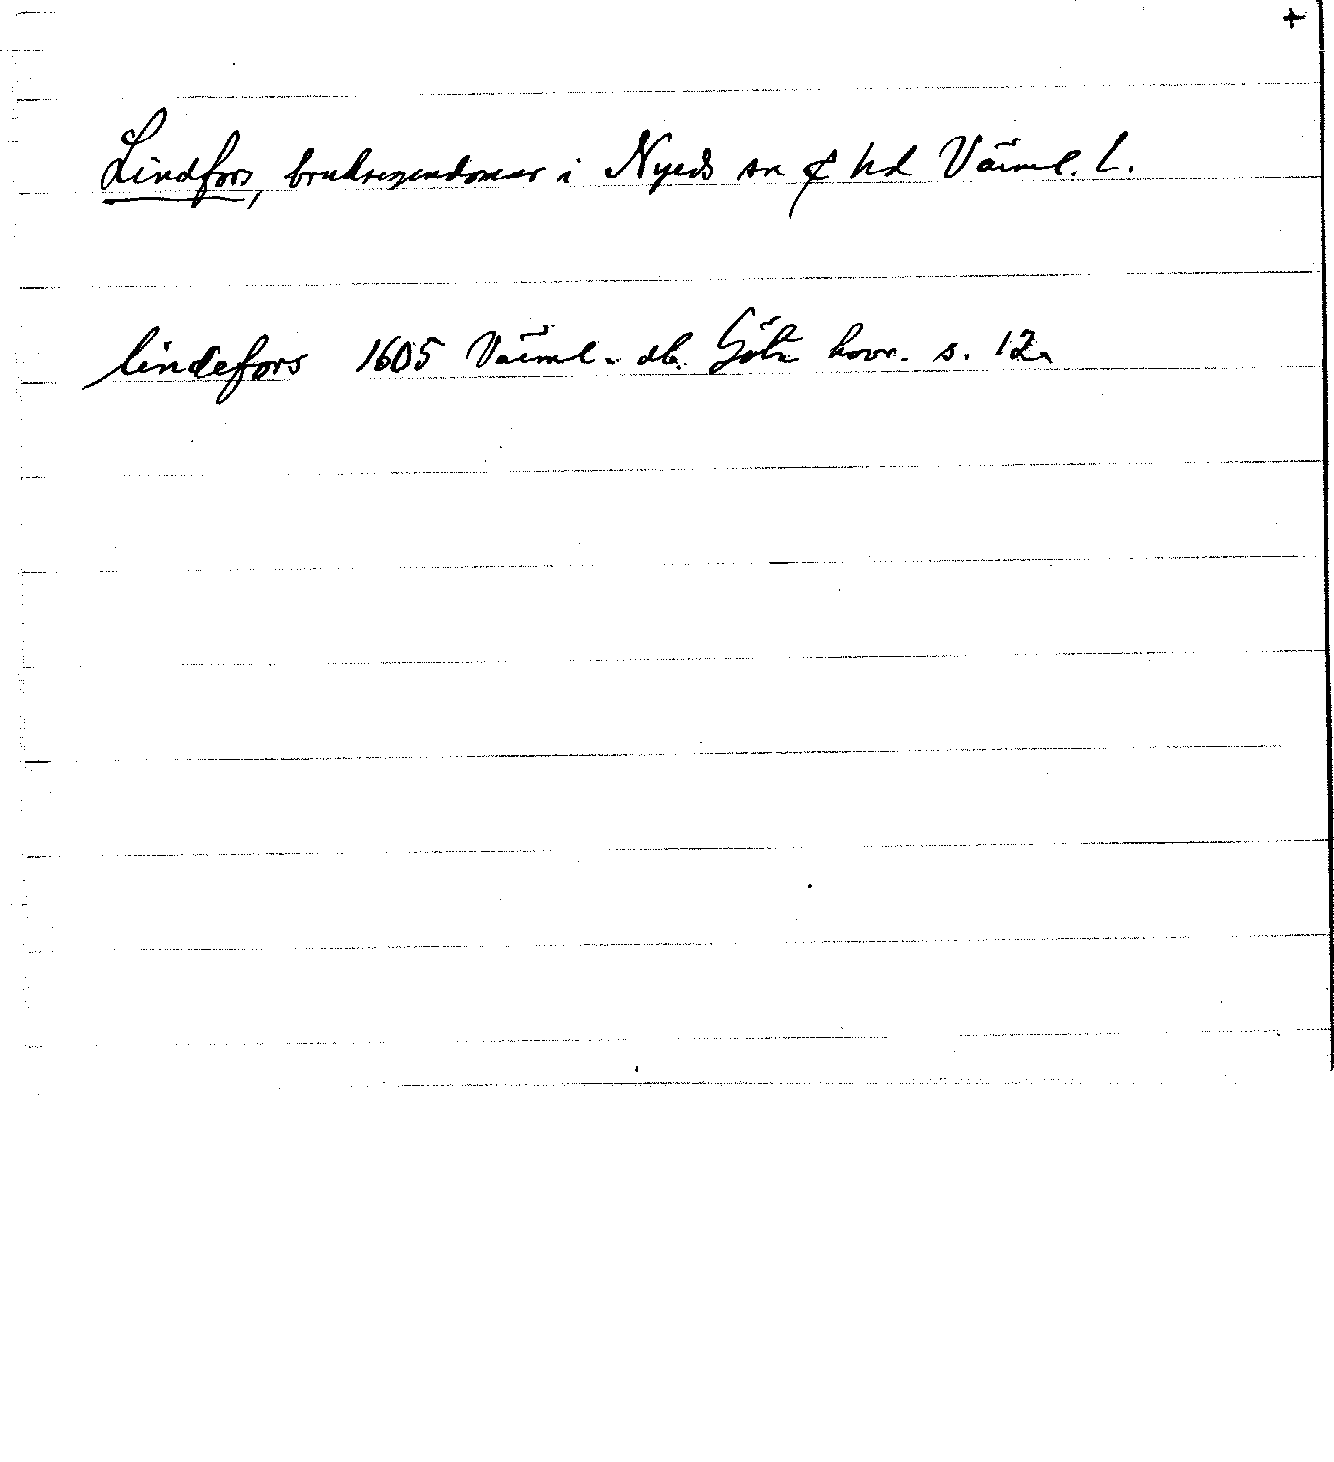 +
Lindfors, bruksegendomar i Nyeds sn & hd Värml. l.
lindefors 1605 Värml. db. Göta hovr. s. 12.